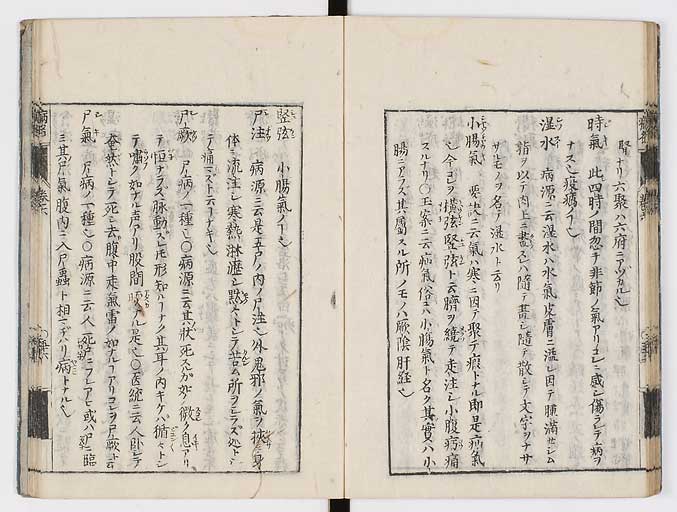 腎ナリ六聚ハ六府ニアツカル也
時氣　此四時ノ間忽チ非節ノ氣アリ是ニ感シ傷ラレテ病ヲ
ナス也疫癘ノイ也
濕水　病源ニ云濕水ハ水氣皮膚ニ溢レ因テ腫滿セシム
指ヲ以テ肉上ニ畫スレハ隨テ畫シ隨テ散シテ文字ヲナサ
サルモノヲ名テ濕水ト云リ
小腸氣　要訣ニ云氣ハ寒ニ因テ聚テ痕トナル即是疝氣
也今コレヲ橫弦竪弦ト云臍ヲ繞テ走注シ小腹㽲痛
スルナリ〇玉案ニ云疝氣俗ニハ小腸氣ト名ク其實ハ小
腸ニアラス其屬スル所ノモノハ厥陰肝經也
竪弦　小腸氣ノイ也
尸注　病源ニ云是五尸ノ内ノ尸注也外鬼邪ノ氣ヲ挾ミ身
体ニ流注シ寒熱淋瀝シ默々トシテ苦ム所ヲシラズ処トシ
テ痛マズト云コトナキ也
尸厥　尸病ノ一種也〇病源ニ云其状死スルカ如ク微ク息アリ
テ恒ナラス脉動ズレモ形知ルコナク其耳ノ内キケハ循々トシ
テ嘯ク如ナル声アリ股間暖ナル是也〇医統ニ云人臥シテ
奄然トシテ死シ去腹中走氣雷ノ如ナルコアリコレヲ尸厥ト云
尸氣　尸病ノ一種也〇病源ニ云人死尸ニフレアヒ或ハ尸ニ臨
ミ其尸氣腹内ニ入尸蟲ト相マジハリ病トナル也